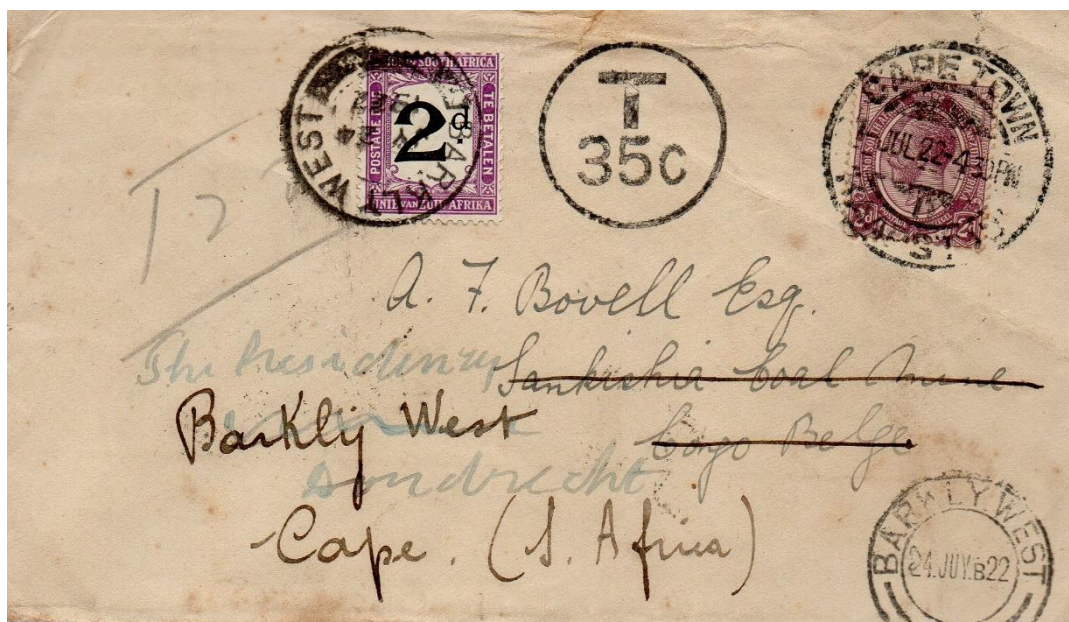 UNION OF SOUTH AFRICA
POSTAGE DUE
TE BETALEN
2d
UNIE VAN ZUID AFRIKA
BARKLY WEST
T
35c
CAPE TOWN
JUL 22
PM
A. F. Bovell Esq.
The Presidency
Sankishia Coal Mine
Barkly West
Congo Belge
Dordrecht
Cape. (S. Africa)
BARKLY WEST
24.JUY.B22